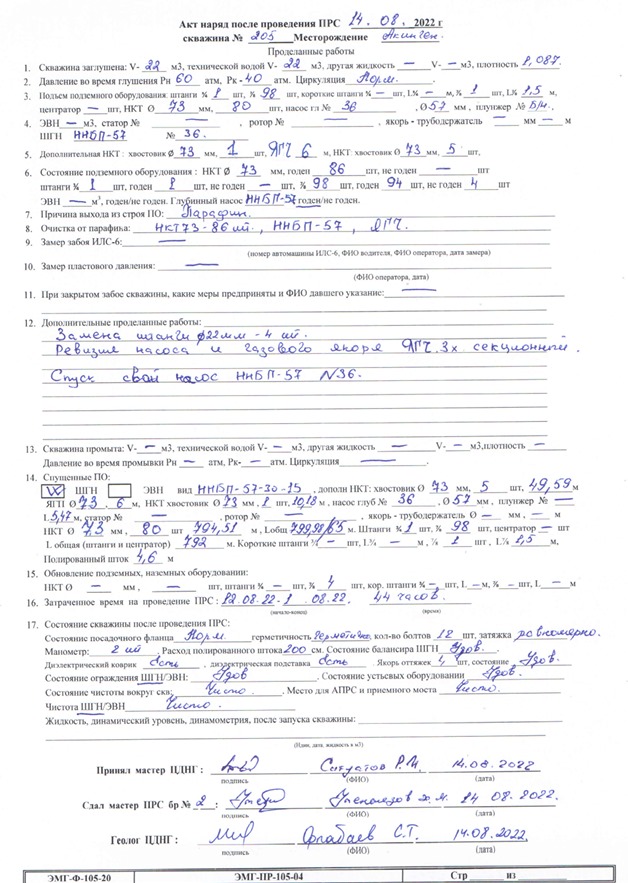 Акт наряд после проведения ПРС 14. 08. 2022 г
скважина № 205 Месторождение Акинген.
Проделанные работы
1. Скважина заглушена: V- 22 м3, технической водой V- 22 м3, другая жидкость — V- — м3, плотность 1,087.
2. Давление во время глушения Рн 60 атм, Рк - 40 атм. Циркуляция Норм.
3. Подъем подземного оборудования: штанги ¾ 1 шт, ⅞ 98 шт, короткие штанги — шт, L¾ — м, ⅞ 1 шт, L⅞ 1,5 м,
центратор — шт, НКТ Ø 73 мм, 80 шт, насос гл № 36, Ø 57 мм, плунжер № Б/н.
4. ЭВН — м3, статор № —, ротор № —, якорь - трубодержатель — мм — м
ШГН ННБП-57 № 36.
5. Дополнительная НКТ : хвостовик Ø 73 мм, 1 шт, ЯГЧ 6 м, НКТ: хвостовик Ø 73 мм, 5 шт,
6. Состояние подземного оборудования : НКТ Ø 73 мм, годен 86 шт, не годен — шт
штанги ¾ 1 шт, годен 1 шт, не годен — шт, ⅞ 98 шт, годен 94 шт, не годен 4 шт
ЭВН — м³, годен/не годен. Глубинный насос ННБП-57 годен/не годен.
7. Причина выхода из строя ПО: Парафин.
8. Очистка от парафина: НКТ73-86 шт., ННБП-57, ЯГЧ.
9. Замер забоя ИЛС-6: —
(номер автомашины ИЛС-6, ФИО водителя, ФИО оператора, дата замера)
10. Замер пластового давления: —
(ФИО оператора, дата)
11. При закрытом забое скважины, какие меры предприняты и ФИО давшего указание: —
12. Дополнительные проделанные работы:
Замена штанги ø22мм - 4 шт.
Ревизия насоса и газового якоря ЯГЧ 3х секционный.
Спуск свой насос ННБП-57 №36.
13. Скважина промыта: V- — м3, технической водой V- — м3, другая жидкость — V- — м3,плотность —
Давление во время промывки Рн — атм, Рк- — атм. Циркуляция —.
14. Спущенные ПО:
ШГН ЭВН вид ННБП-57-30-15, дополн НКТ: хвостовик Ø 73 мм, 5 шт, 49,59 м
ЯГП Ø 73, 6 м, НКТ хвостовик Ø 73 мм 1 шт, 10,18 м, насос глуб № 36, Ø 57 мм, плунжер № —
L 5,47 м, статор № —, ротор № —, якорь - трубодержатель Ø — мм, — м
НКТ Ø 73 мм, 80 шт 794,51 м, Lобщ м. Штанги ¾ 1 шт, ⅞ 98 шт, центратор — шт
L общая (штанги и центратор) 792 м. Короткие штанги ¾ — шт, L¾ — м, ⅞ 1 шт, L⅞ 1,5 м,
Полированный шток 4,6 м
15. Обновление подземных, наземных оборудовании:
НКТ Ø — мм, — шт, штанги ¾ — шт, ⅞ 4 шт, кор. штанги ¾ — шт, L — м, ⅞ — шт, L — м
16. Затраченное время на проведение ПРС : 12.08.22-1 .08.22. 44 часов.
(начало-конец) (время)
17. Состояние скважины после проведения ПРС:
Состояние посадочного фланца Норм. герметичность герметично, кол-во болтов 12 шт, затяжка равномерно.
Манометр: 2 шт. Расход полированного штока 200 см. Состояние балансира ШГН Удов.
Диэлектрический коврик Есть, диэлектрическая подставка Есть. Якорь оттяжек 4 шт, состояние Удов.
Состояние ограждения ШГН/ЭВН: Удов. Состояние устьевых оборудовании Удов.
Состояние чистоты вокруг скв: Чисто. Место для АПРС и приемного моста Чисто.
Чистота ШГН/ЭВН Чисто.
Жидкость, динамический уровень, динамометрия, после запуска скважины:
(Идин, дата, жидкость в м3)
Принял мастер ЦДНГ : 14.08.2022
подпись (ФИО) (дата)
Сдал мастер ПРС бр № 2 : 14 08. 2022.
подпись (ФИО) (дата)
Геолог ЦДНГ : С.Т. 14.08.2022.
подпись (ФИО) (дата)
ЭМГ-Ф-105-20 ЭМГ-ПР-105-04 Стр из